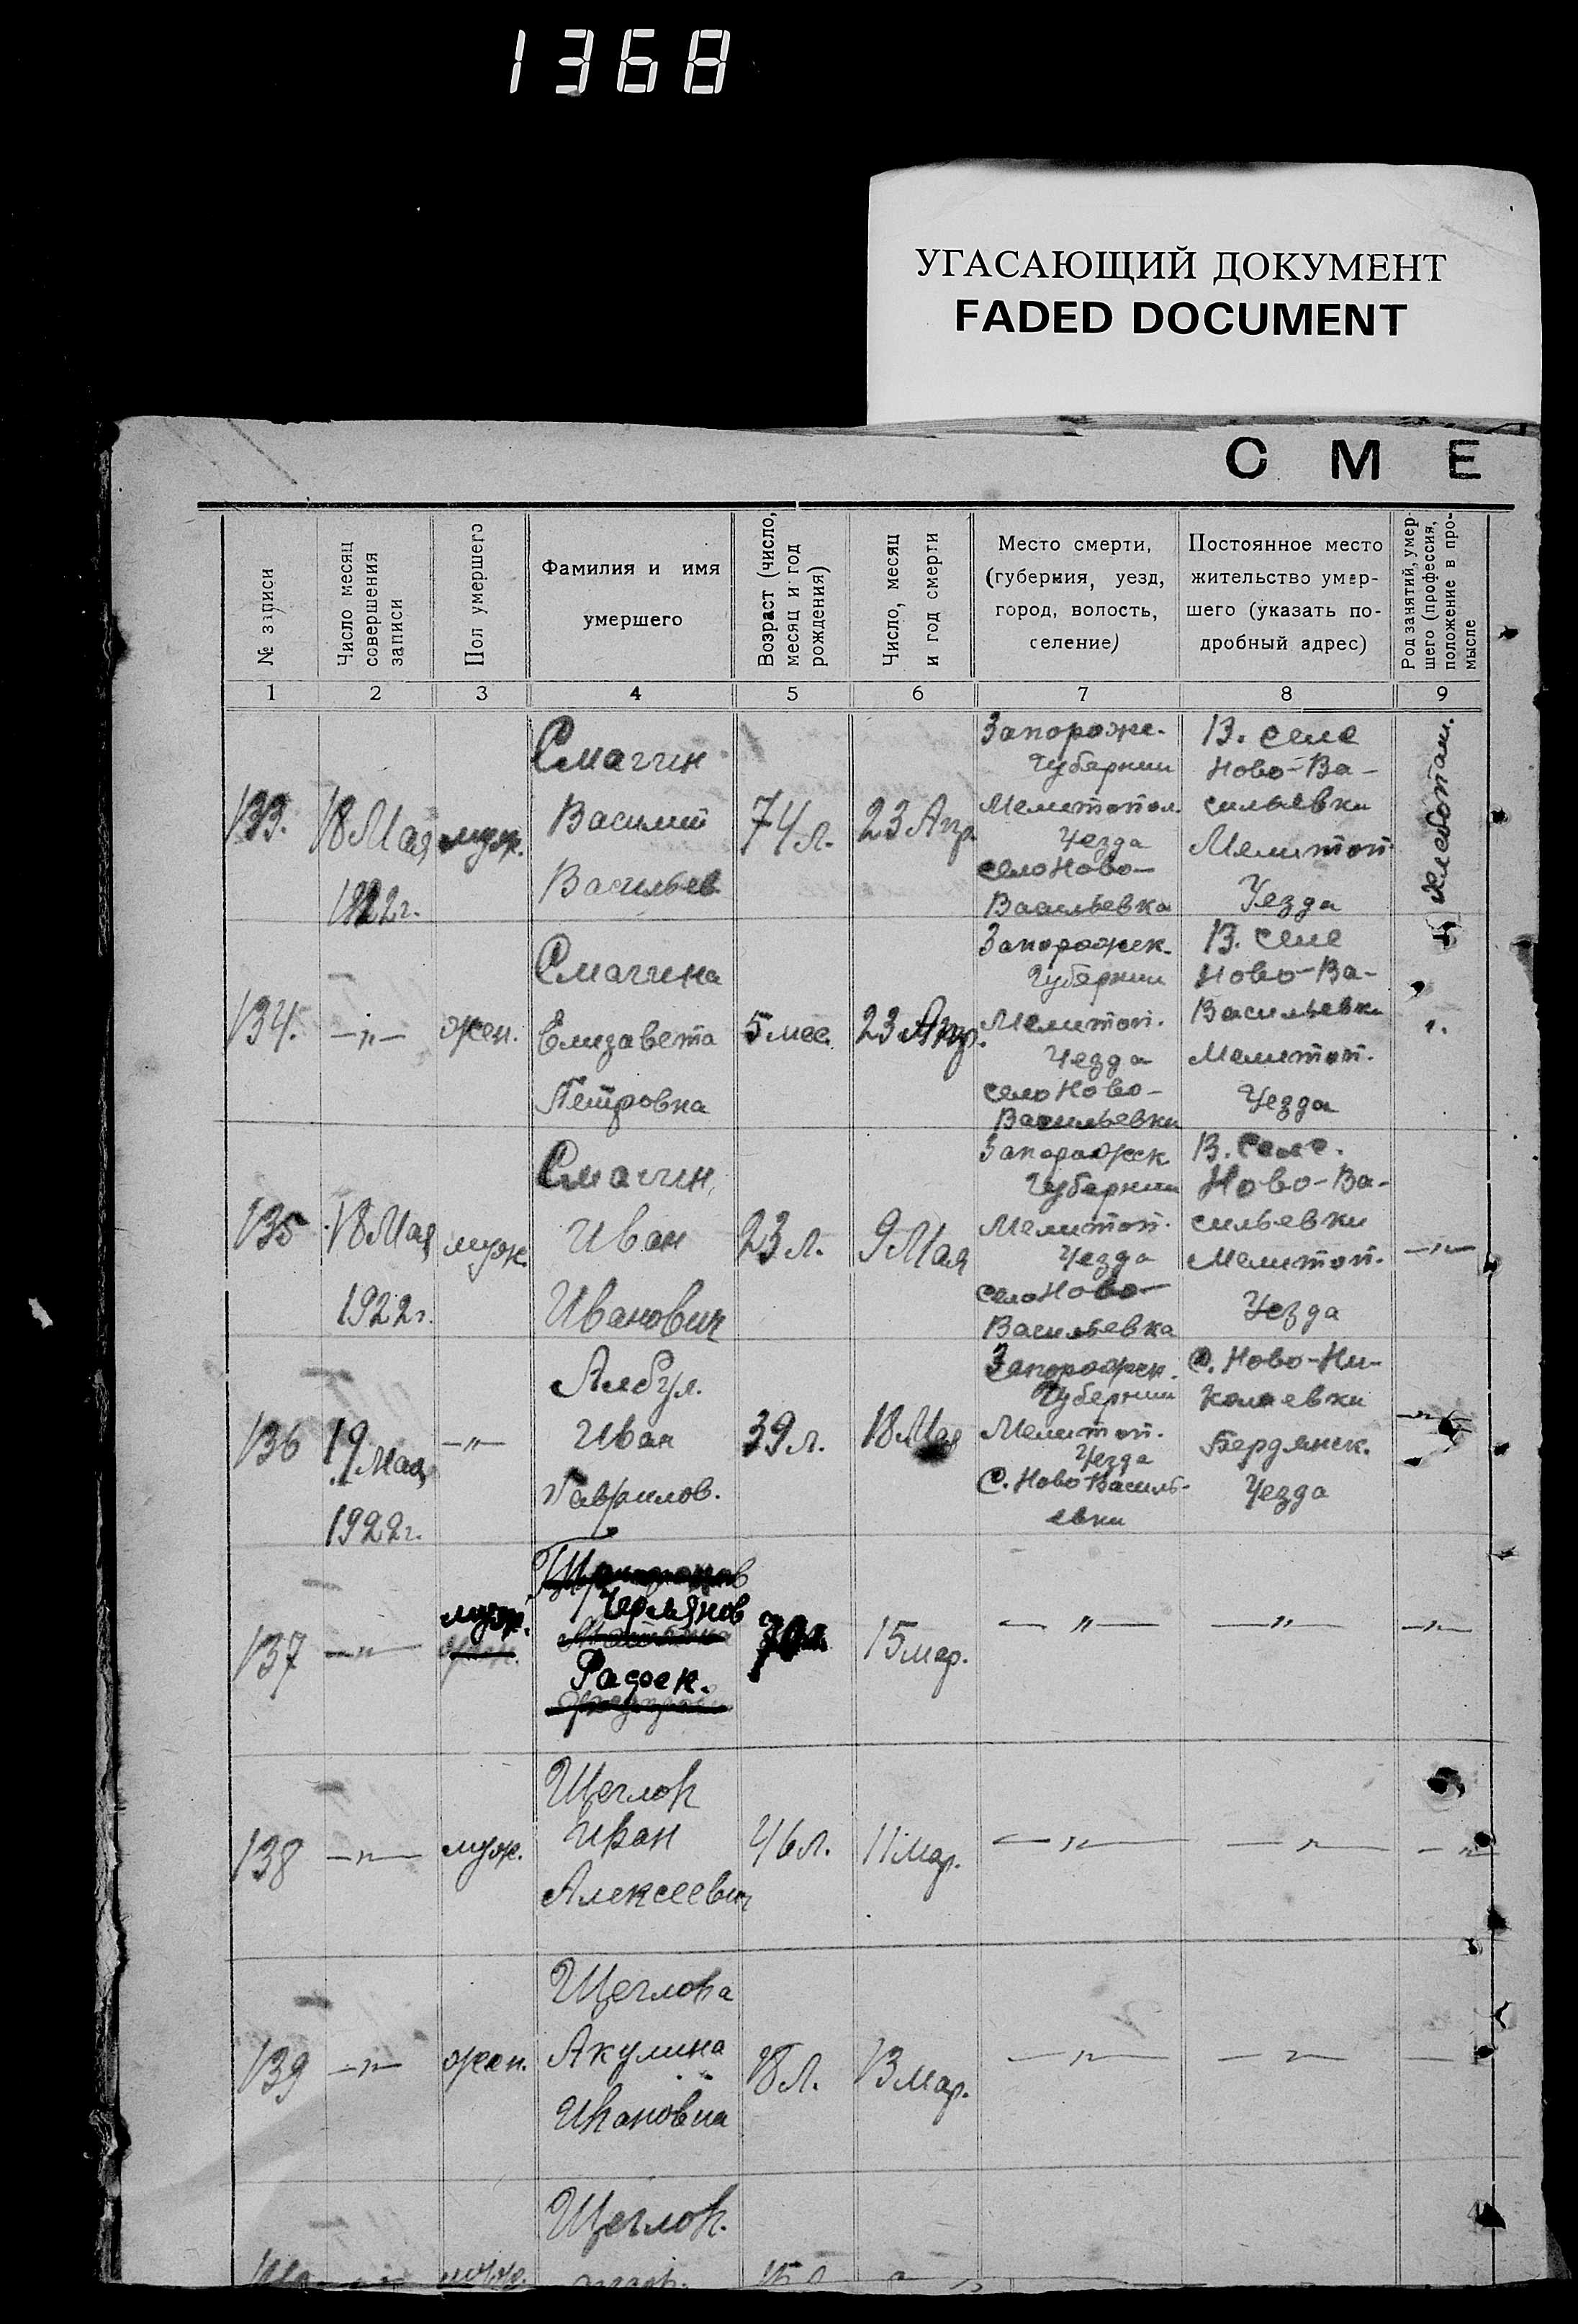 1368
УГАСАЮЩИЙ ДОКУМЕНТ
FADED DOCUMENT
С М Е
№ записи
Число месяц
совершения
записи
Пол умершего
Фамилия и имя
умершего
Возраст (число,
месяц и год
рождения)
Число, месяц
и год смерти
Место смерти,
(губерния, уезд,
город, волость,
селение)
Постоянное место
жительство умер-
шего (указать по-
дробный адрес)
Род занятий, умер-
шего (профессия,
положение в про-
мысле
1 2 3 4 5 6 7 8 9
133.
18 Мая
1922 г.
муж.
Смагин
Василий
Васильев.
74 л.
23 Апр
Запороже.
Губернии
Мелитопол.
Уезда
село Ново-
Васильевка
В. селе
Ново-Ва-
сильевки
Мелитоп.
Уезда
134.
-"-
жен.
Смагина
Елизавета
Петровна
5 мес.
23 Апр.
Запорожск.
Губернии
Мелитоп.
Уезда
село Ново-
Васильевки
В. селе
Ново-Ва-
Васильевки
Мелитоп.
Уезда
".
135
18 Мая
1922 г.
муж.
Смагин
Иван
Иванович
23 л.
9 Мая
Запорожск
Губернии
Мелитоп.
Уезда
село Ново-
Васильевка
В. селе.
Ново-Ва-
сильевки
Мелитоп.
Уезда
-"-
136
19 Мая
1922 г.
-"-
Иван
Гаврилов.
39 л.
18 Мая
Запорожск.
Губернии
Мелитоп.
Уезда
С. Ново Василь-
евки
С. Ново-Ни-
колаевки
Бердянск.
Уезда
137
-"-
муж.
15 мар.
-"-
-"-
-"-
138
-"-
муж.
Щеглов
Иван
Алексеевич
46 л.
11 Мар.
-"-
-"-
-"-
139
-"-
жен.
Щеглова
Акулина
Ивановна
18 л.
13 мар.
-"-
-"-
Щеглов.